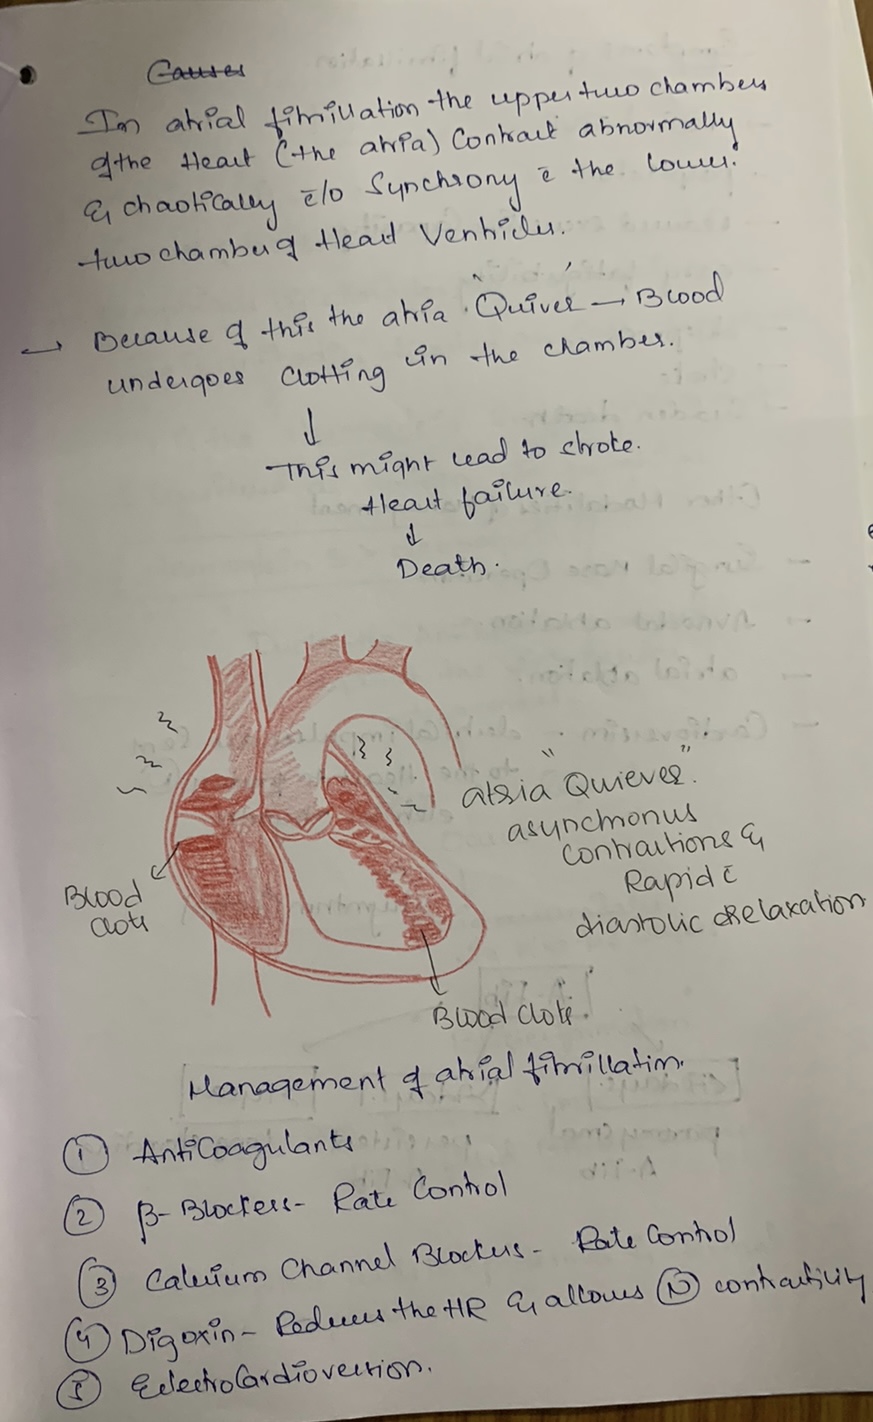 Causes
In atrial fibrillation the upper two chambers
of the Heart (the atria) Contract abnormally
& chaotically c̄/o Synchrony c̄ the lower
two chamber of Heart Ventricles.
→ Because of this the atria "Quiver → Blood
undergoes Clotting in the chamber.
↓
This might lead to stroke.
Heart failure.
↓
Death.
atria "Quiever".
asynchronus
Contractions &
Rapid c̄
diastolic Relaxation
Blood
Clots
Blood Clots.
Management of atrial fibrillation.
① AntiCoagulants
② β-Blockers - Rate Control
③ Calcium Channel Blockers - Rate Control
④ Digoxin - Reduces the HR & allows Ⓝ contractility
⑤ EelectroCardioversion.